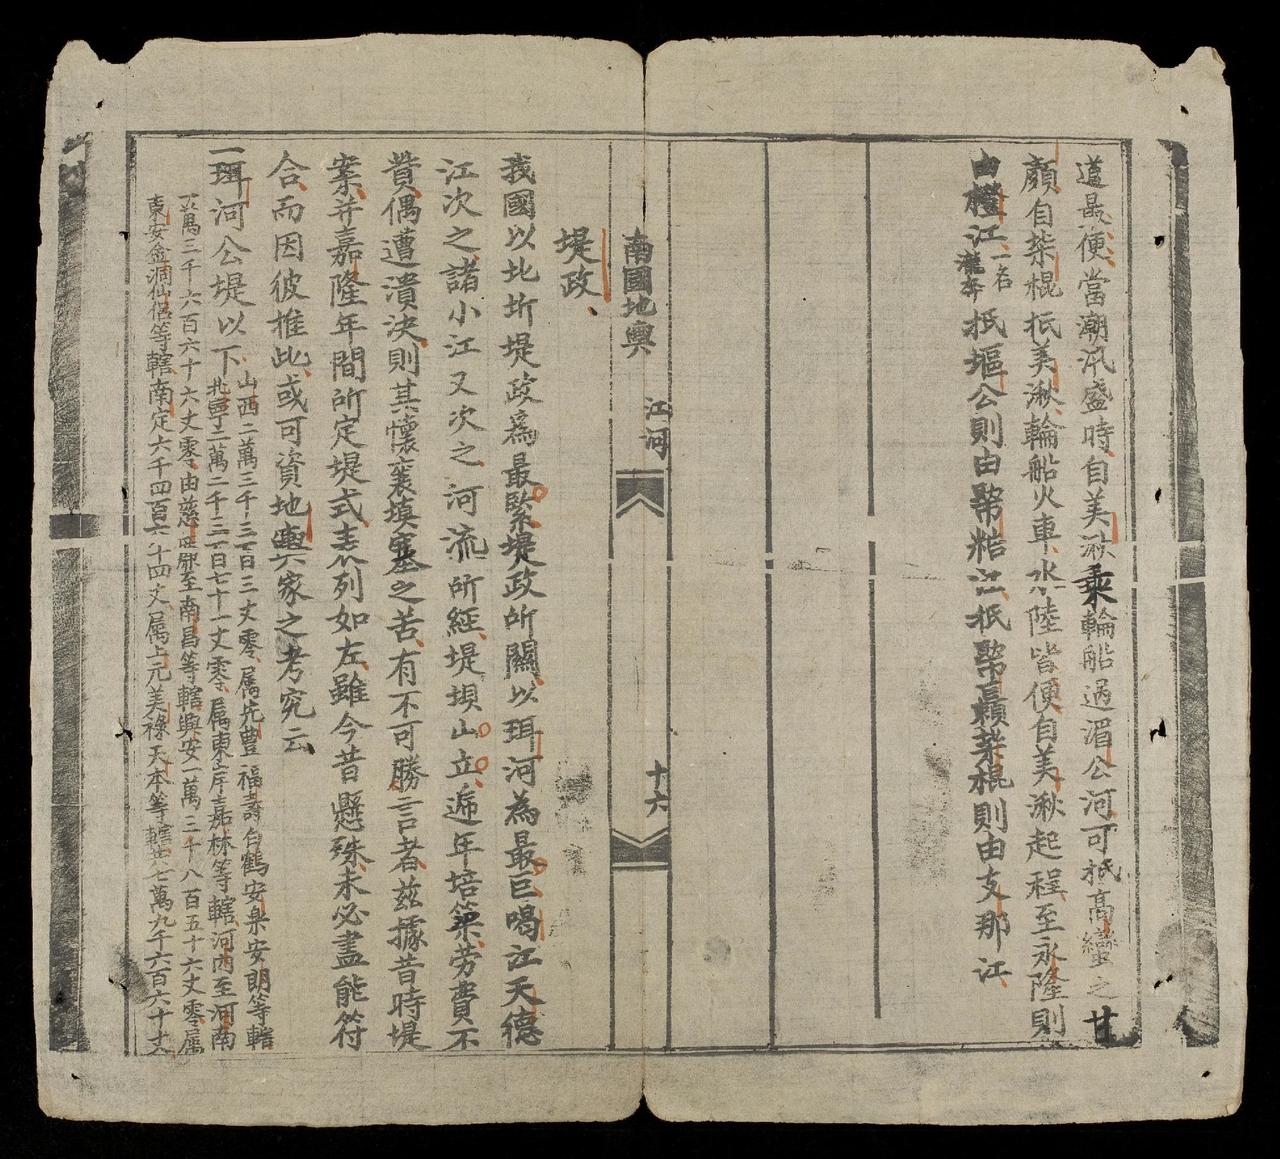 道最便當潮汛盛時自美湫乘輪船過湄公河可抵高蠻之甘
頗自桀棍抵美湫輪船火車水陸皆便自美湫起程至永隆則
由橙江一名瀧岑抵塸公則由幣𥺊江抵幣䕷桀棍則由支那江
南國地輿 江河 十六
堤政
我國以北圻堤政爲最緊堤政所關以珥河為最巨喝江天德
江次之諸小江又次之河流所經堤埧山立遞年培築劳費不
貲偶遭潰决則其懷襄填塞之苦有不可勝言者茲據昔時堤
案并嘉隆年間所定堤式表列如左雖今昔懸殊未必盡能符
合而因彼推此或可資地輿家之考究云
一珥河公堤以下山西二萬三千三百三丈零属先豊福壽白鶴安樂安朗等轄
北寧二萬二千三百七十一丈零属東岸嘉林等轄河内至河南
萬三千六百六十六丈零由慈廉至南昌等轄興安一萬三千八百五十六丈零属
東安金洞仙侣等轄南定六千四百六十四丈属上元美祿天本等轄共七萬九千六百六十丈